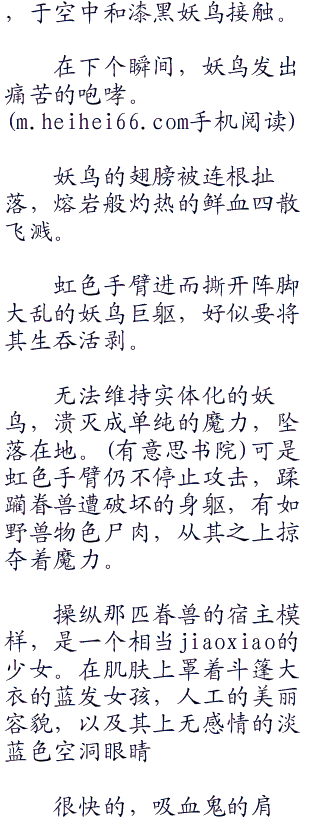 ，于空中和漆黑妖鸟接触。
在下个瞬间，妖鸟发出
痛苦的咆哮。
(m.heihei66.com手机阅读)
妖鸟的翅膀被连根扯
落，熔岩般灼热的鲜血四散
飞溅。
虹色手臂进而撕开阵脚
大乱的妖鸟巨躯，好似要将
其生吞活剥。
无法维持实体化的妖
鸟，溃灭成单纯的魔力，坠
落在地。(有意思书院)可是
虹色手臂仍不停止攻击，蹂
躏眷兽遭破坏的身躯，有如
野兽物色尸肉，从其之上掠
夺着魔力。
操纵那匹眷兽的宿主模
样，是一个相当jiaoxiao的
少女。在肌肤上罩着斗篷大
衣的蓝发女孩，人工的美丽
容貌，以及其上无感情的淡
蓝色空洞眼睛
很快的，吸血鬼的肩